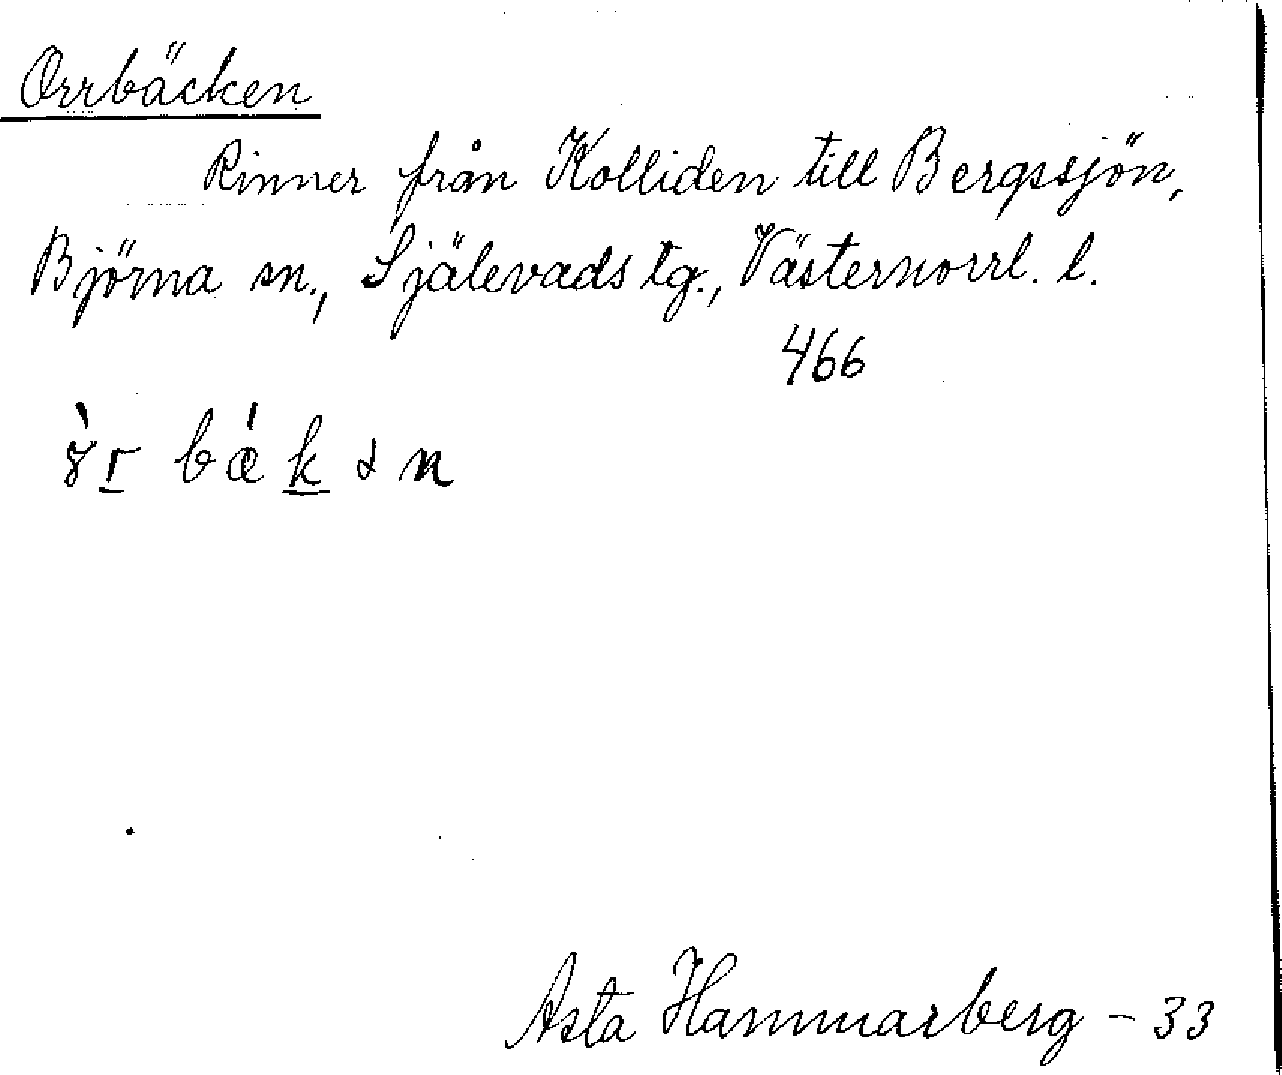 Orrbäcken
Rinner från Kolliden till Bergssjön,
Björna sn., Själevads tg., Västernorrl. l.
466
Asta Hammarberg - 33